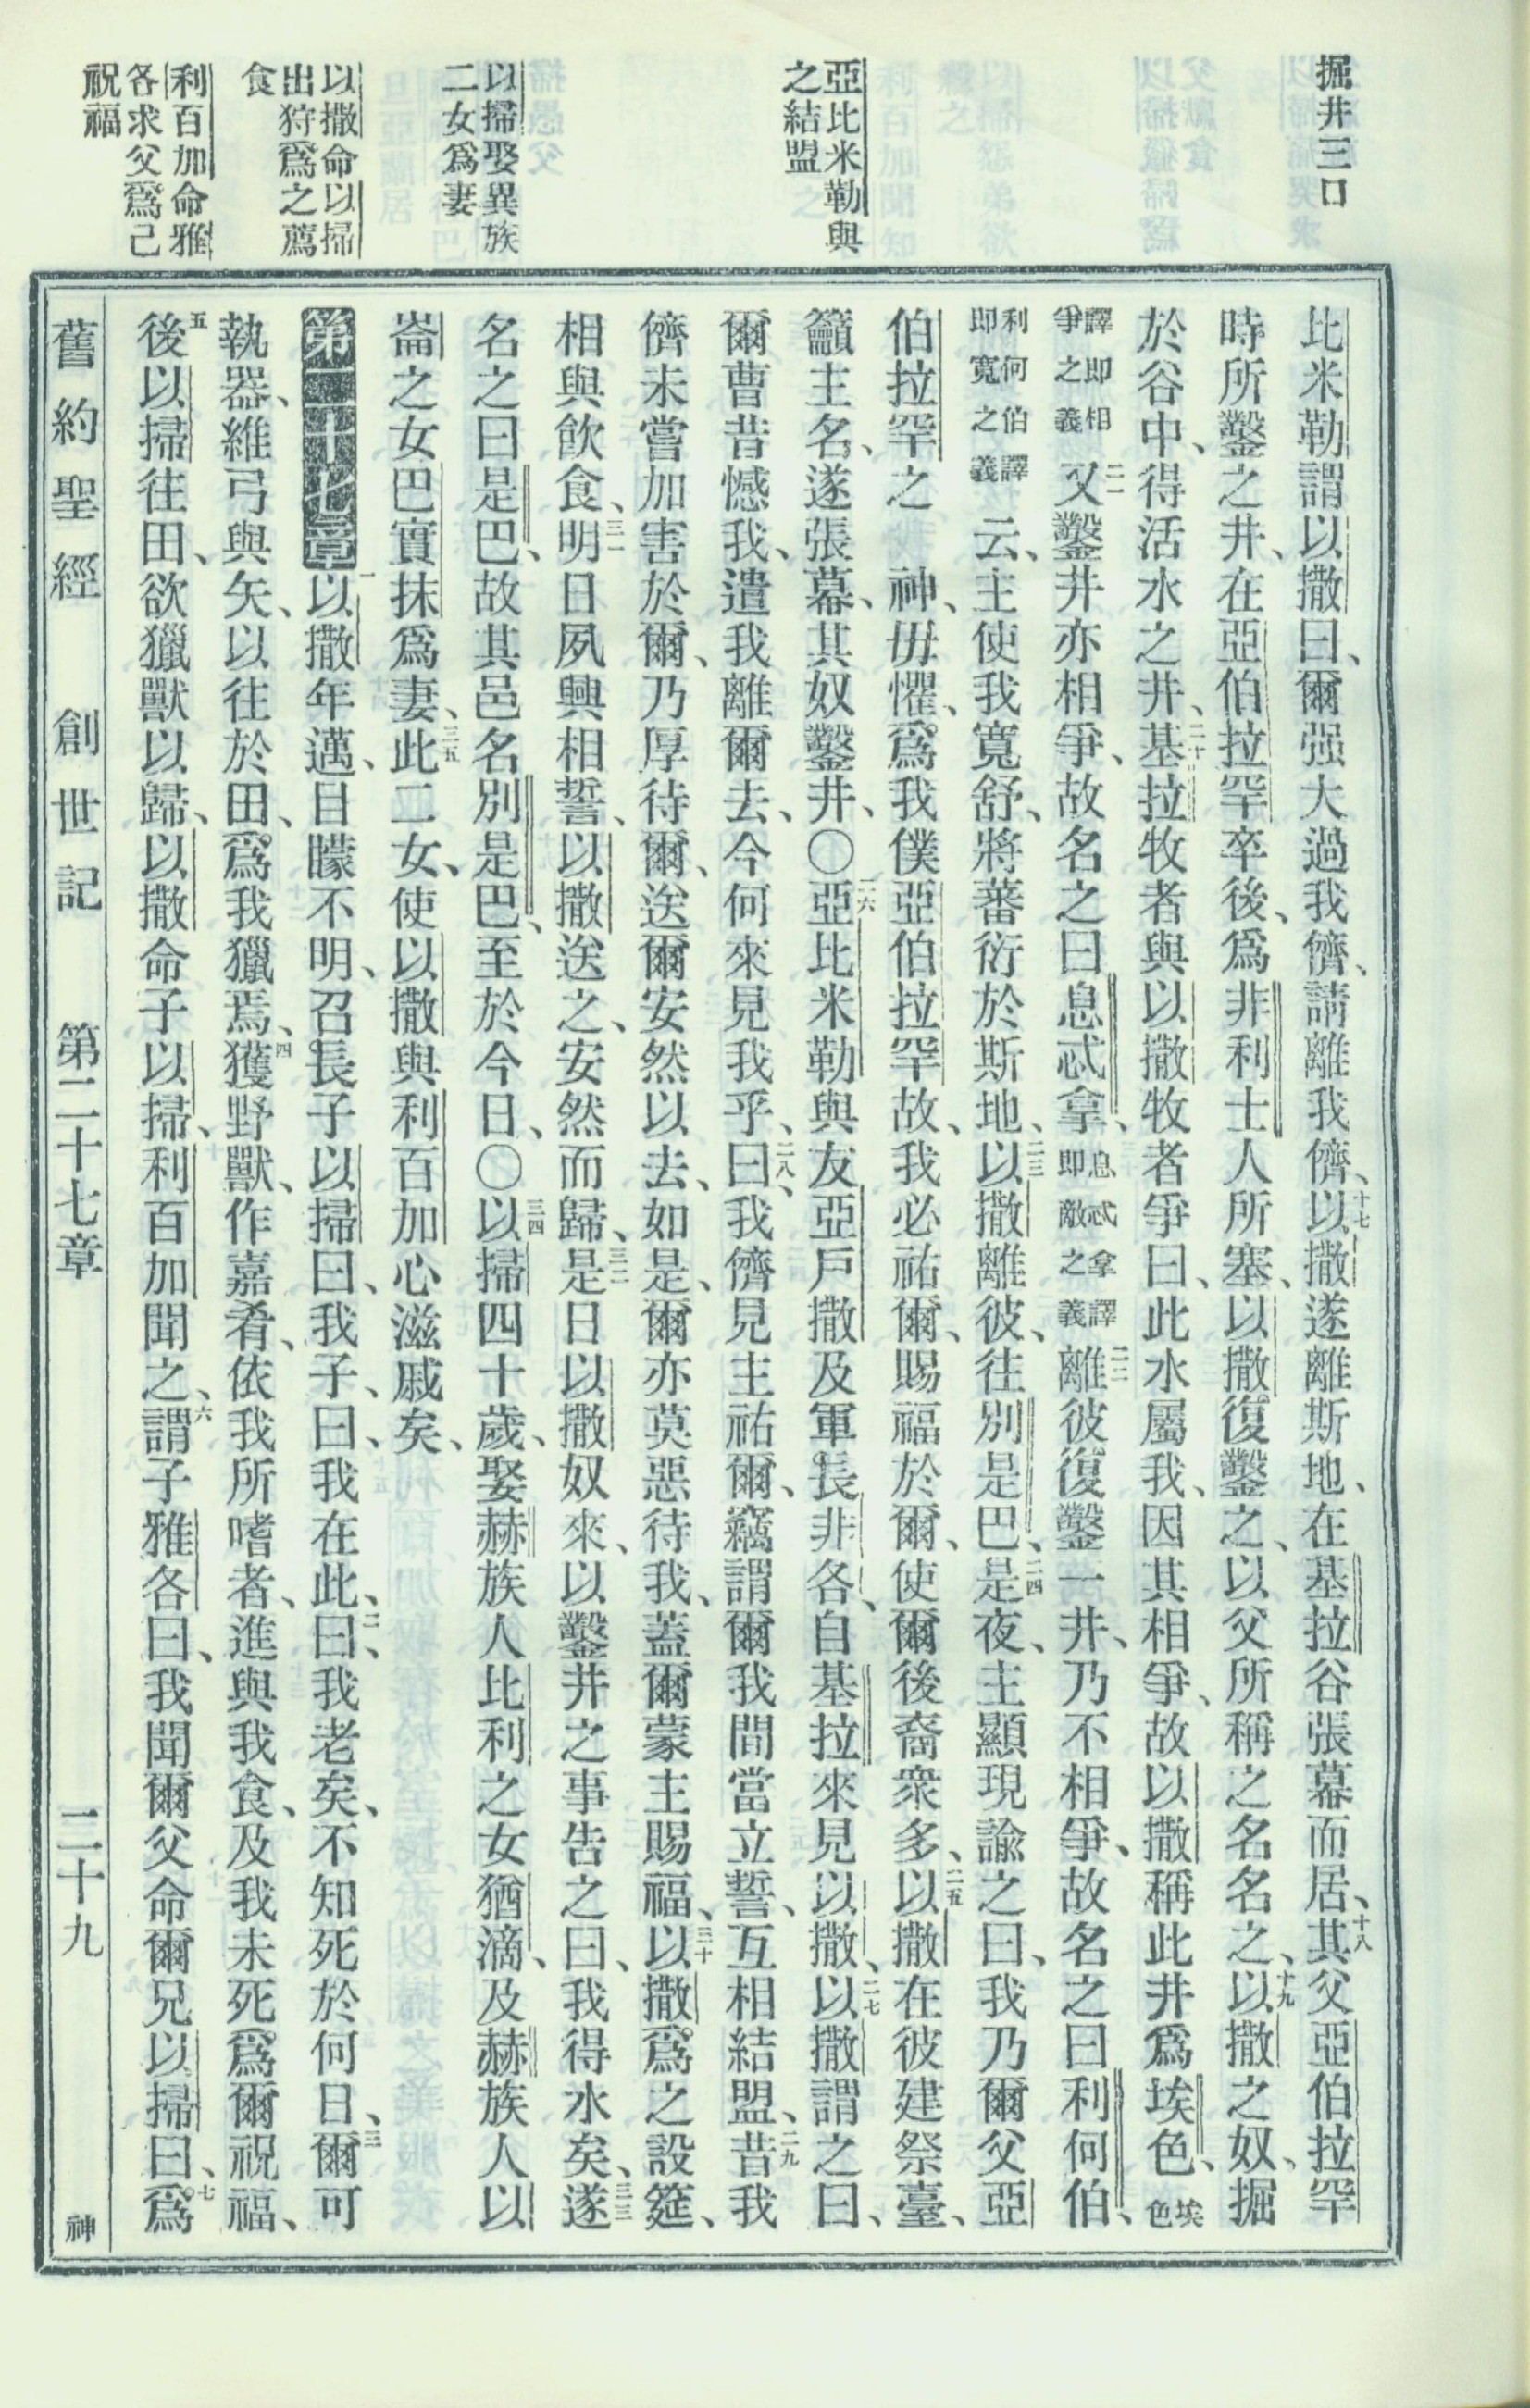 掘井三口
亞比米勒與
之結盟
以掃娶異族
二女爲妻
以撒命以掃
出狩爲之薦
食
利百加命雅
各求父爲己
祝福
比米勒謂以撒曰、爾强大過我儕、請離我儕、十七以撒遂離斯地、在基拉谷張幕而居、十八其父亞伯拉罕
時所鑿之井、在亞伯拉罕卒後、爲非利士人所塞、以撒復鑿之、以父所稱之名名之、十九以撒之奴、掘
於谷中、得活水之井、二十基拉牧者與以撒牧者爭曰、此水屬我、因其相爭、故以撒稱此井爲埃色、埃色
譯即相爭之義二一又鑿井亦相爭、故名之曰息忒拿、息忒拿譯即敵之義二二離彼復鑿一井、乃不相爭、故名之曰利何伯、
利何伯譯即寬之義云、主使我寬舒、將蕃衍於斯地、二三以撒離彼、往別是巴、二四是夜、主顯現諭之曰、我乃爾父亞
伯拉罕之　神、毋懼、爲我僕亞伯拉罕故、我必祐爾、賜福於爾、使爾後裔衆多、二五以撒在彼建祭臺、
籲主名、遂張幕、其奴鑿井、〇二六亞比米勒與友亞戶撒及軍長非各、自基拉來見以撒、二七以撒謂之曰、
爾曹昔憾我、遣我離爾去、今何來見我乎、二八曰、我儕見主祐爾、竊謂爾我間當立誓、互相結盟、二九昔我
儕未嘗加害於爾、乃厚待爾、送爾安然以去、如是、爾亦莫惡待我、蓋爾蒙主賜福、三十以撒爲之設筵、
相與飮食、三一明日夙興相誓、以撒送之、安然而歸、三二是日以撒奴來、以鑿井之事告之曰、我得水矣、三三遂
名之曰是巴、故其邑名別是巴、至於今日、〇三四以掃四十歲、娶赫族人比利之女猶滴、及赫族人以
崙之女巴實抹爲妻、三五此二女、使以撒與利百加心滋戚矣、
第二十七章一以撒年邁、目矇不明、召長子以掃曰、我子、曰、我在此、二曰、我老矣、不知死於何日、三爾可
執器、維弓與矢、以往於田、爲我獵焉、四獲野獸、作嘉肴、依我所嗜者、進與我食、及我未死、爲爾祝福、
五後以掃往田、欲獵獸以歸、以撒命子以掃、利百加聞之、六謂子雅各曰、我聞爾父命爾兄以掃曰、七爲
舊約聖經　創世記　第二十七章　二十九　神